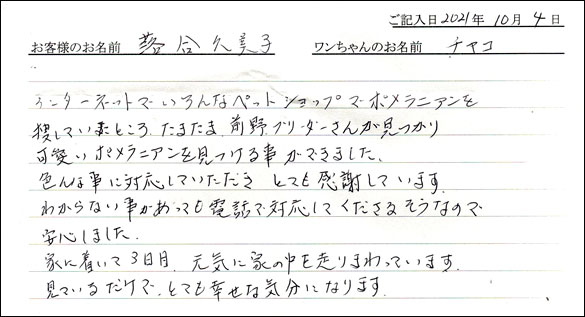 ご記入日 2021年 10月 4日
お客様のお名前 落合久美子 ワンちゃんのお名前 チャコ
インターネットでいろんなペットショップでポメラニアンを
捜していたところ、たまたま前野ブリーダーさんが見つかり
可愛いポメラニアンを見つける事ができました。
色んな事に対応していただき とても感謝しています。
わからない事があっても電話で対応してくださるそうなので
安心しました。
家に着いて3日目、元気に家の中を走りまわっています。
見ているだけで、とても幸せな気分になります。